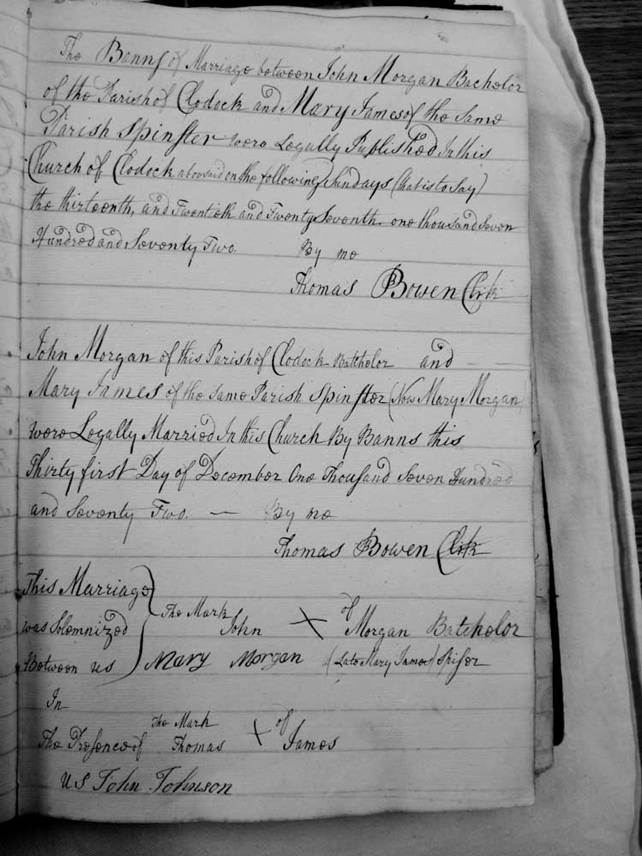 The Banns of Marriage between John Morgan Bachelor
of the Parish of Clodock and Mary James of the same
Parish Spinster were Legally Published In this
Church of Clodock aboresaid on the following Sundays (that is to Say)
the thirteenth, and Twentieth and Twenty Seventh one thousand Seven
Hundred and Seventy Two. By me
Thomas Bowen Clrk
John Morgan of this Parish of Clodock Batchelor and
Mary James of the same Parish Spinster (Now Mary Morgan)
were Legally Married In this Church By Banns this
Thirty first Day of December One Thousand Seven Hundred
and Seventy Two. — By me
Thomas Bowen Clrk
This Marriage
was Solemnized
Between us
The Mark of
John X Morgan Batchelor
Mary Morgan (Late Mary James) Spiser
In
The Presence of
The Mark of
Thomas X James
us John Johnson